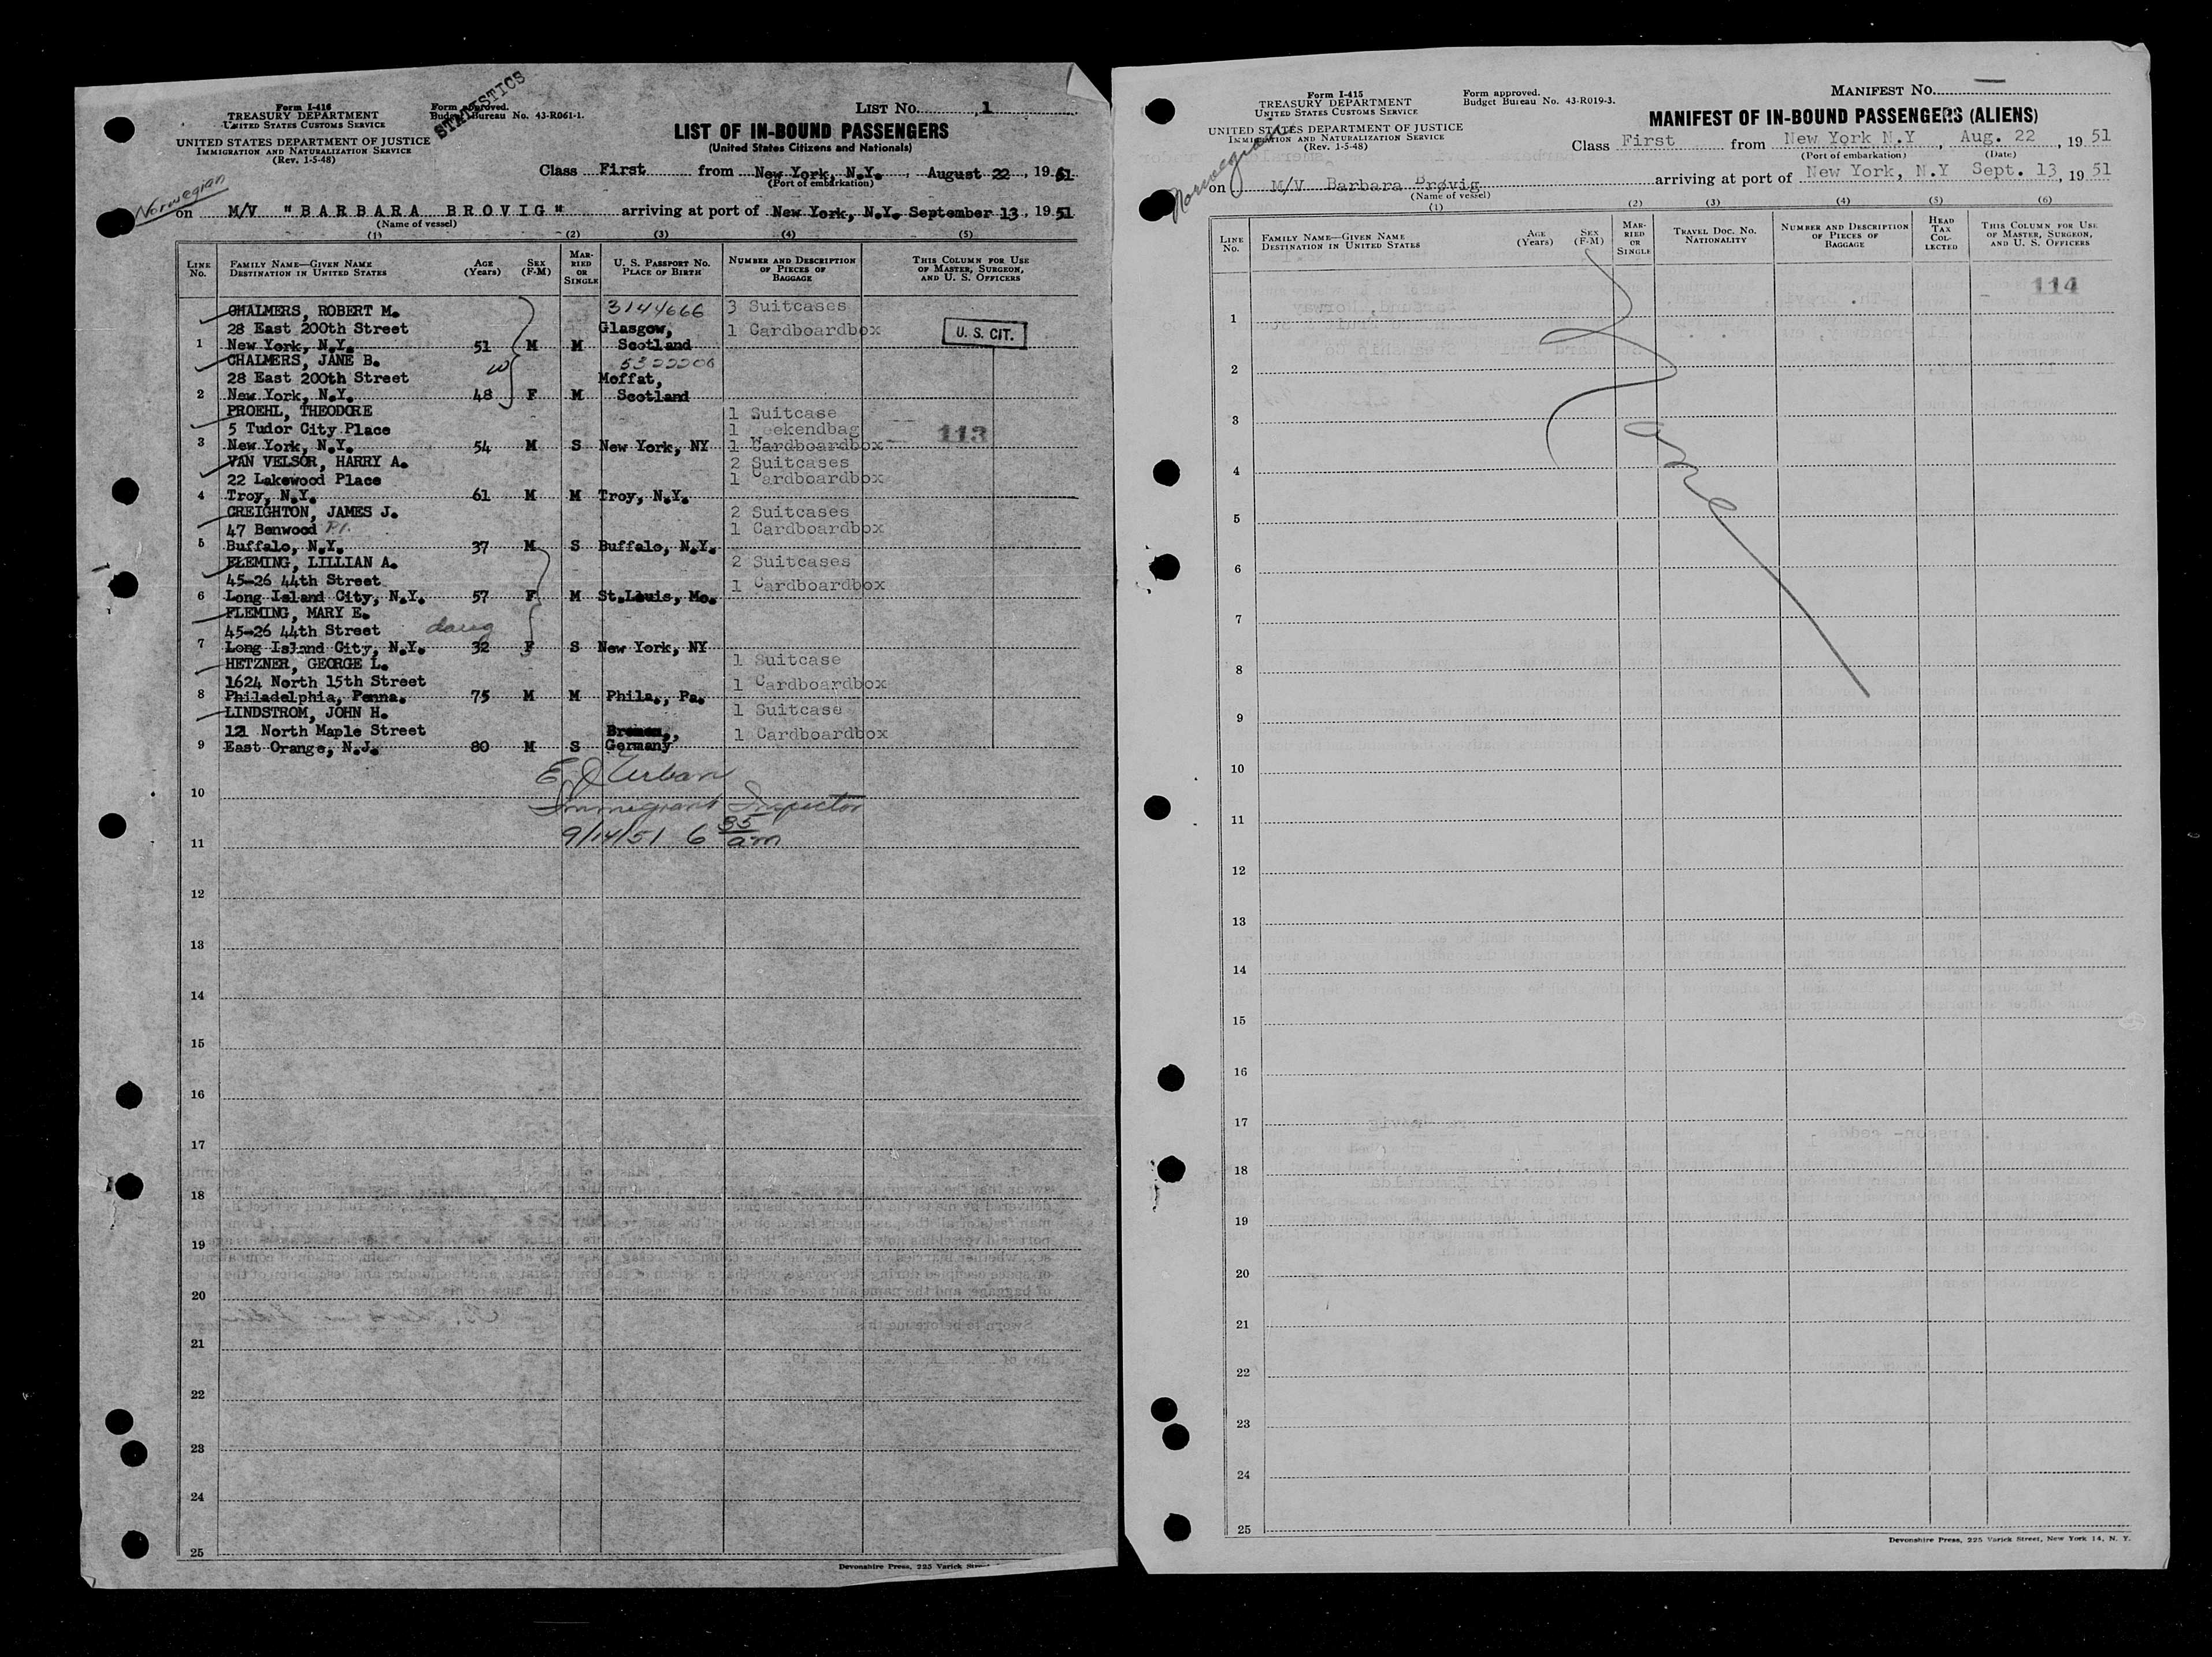 STATISTICS
Form I-416
TREASURY DEPARTMENT
UNITED STATES CUSTOMS SERVICE
UNITED STATES DEPARTMENT OF JUSTICE
IMMIGRATION AND NATURALIZATION SERVICE
(Rev. 1-5-48)
Form approved.
Budget Bureau No. 43-R061-1.
LIST No. 1
LIST OF IN-BOUND PASSENGERS
(United States Citizens and Nationals)
Class First from New York, N.Y., August 22, 1951
(Port of embarkation)
Norwegian
on M/V "BARBARA BROVIG" arriving at port of New York, N.Y. September 13, 1951
(Name of vessel)
(1) (2) (3) (4) (5)
LINE No.
FAMILY NAME—GIVEN NAME
DESTINATION IN UNITED STATES
AGE (Years)
SEX (F-M)
MARRIED OR SINGLE
U. S. PASSPORT NO.
PLACE OF BIRTH
NUMBER AND DESCRIPTION OF PIECES OF BAGGAGE
THIS COLUMN FOR USE OF MASTER, SURGEON, AND U. S. OFFICERS
CHALMERS, ROBERT M. 3144666 3 Suitcases
28 East 200th Street Glasgow, 1 Cardboardbox U. S. CIT.
1 New York, N.Y. 51 M M Scotland
CHALMERS, JANE B.
28 East 200th Street w Moffat,
2 New York, N.Y. 48 F M Scotland
PROEHL, THEODORE 1 Suitcase
5 Tudor City Place 1 Weekendbag 113
3 New York, N.Y. 54 M S New York, NY 1 Cardboardbox
VAN VELSOR, HARRY A. 2 Suitcases
22 Lakewood Place 1 Cardboardbox
4 Troy, N.Y. 61 M M Troy, N.Y.
CREIGHTON, JAMES J. 2 Suitcases
47 Benwood Pl. 1 Cardboardbox
5 Buffalo, N.Y. 37 M S Buffalo, N.Y.
FLEMING, LILLIAN A. 2 Suitcases
45-26 44th Street 1 Cardboardbox
6 Long Island City, N.Y. 57 F M St.Louis, Mo.
FLEMING, MARY E.
45-26 44th Street daug
7 Long Island City, N.Y. 32 F S New York, NY
HETZNER, GEORGE L. 1 Suitcase
1624 North 15th Street 1 Cardboardbox
8 Philadelphia, Penna. 75 M M Phila., Pa.
LINDSTROM, JOHN H. 1 Suitcase
121 North Maple Street Bremen, 1 Cardboardbox
9 East Orange, N.J. 80 M S Germany
E J Urban
10
Immigrant Inspector
9/14/51 6 35 am
11
12
13
14
15
16
17
18
19
20
21
22
23
24
25
Devonshire Press, 225 Varick
Form I-415
TREASURY DEPARTMENT
UNITED STATES CUSTOMS SERVICE
UNITED STATES DEPARTMENT OF JUSTICE
IMMIGRATION AND NATURALIZATION SERVICE
(Rev. 1-5-48)
Form approved.
Budget Bureau No. 43-R019-3.
MANIFEST No.
MANIFEST OF IN-BOUND PASSENGERS (ALIENS)
Class First from New York N.Y, Aug. 22, 1951
(Port of embarkation) (Date)
Norwegian
on M/V Barbara Brøvig arriving at port of New York, N.Y Sept. 13, 1951
(Name of vessel)
(1) (2) (3) (4) (5) (6)
LINE No.
FAMILY NAME—GIVEN NAME
DESTINATION IN UNITED STATES
AGE (Years)
SEX (F-M)
MARRIED OR SINGLE
TRAVEL DOC. NO.
NATIONALITY
NUMBER AND DESCRIPTION OF PIECES OF BAGGAGE
HEAD TAX COLLECTED
THIS COLUMN FOR USE OF MASTER, SURGEON, AND U. S. OFFICERS
114
1
2
3
4
5
6
7
8
9
10
11
12
13
14
15
16
17
18
19
20
21
22
23
24
25
Devonshire Press, 225 Varick Street, New York 14, N. Y.